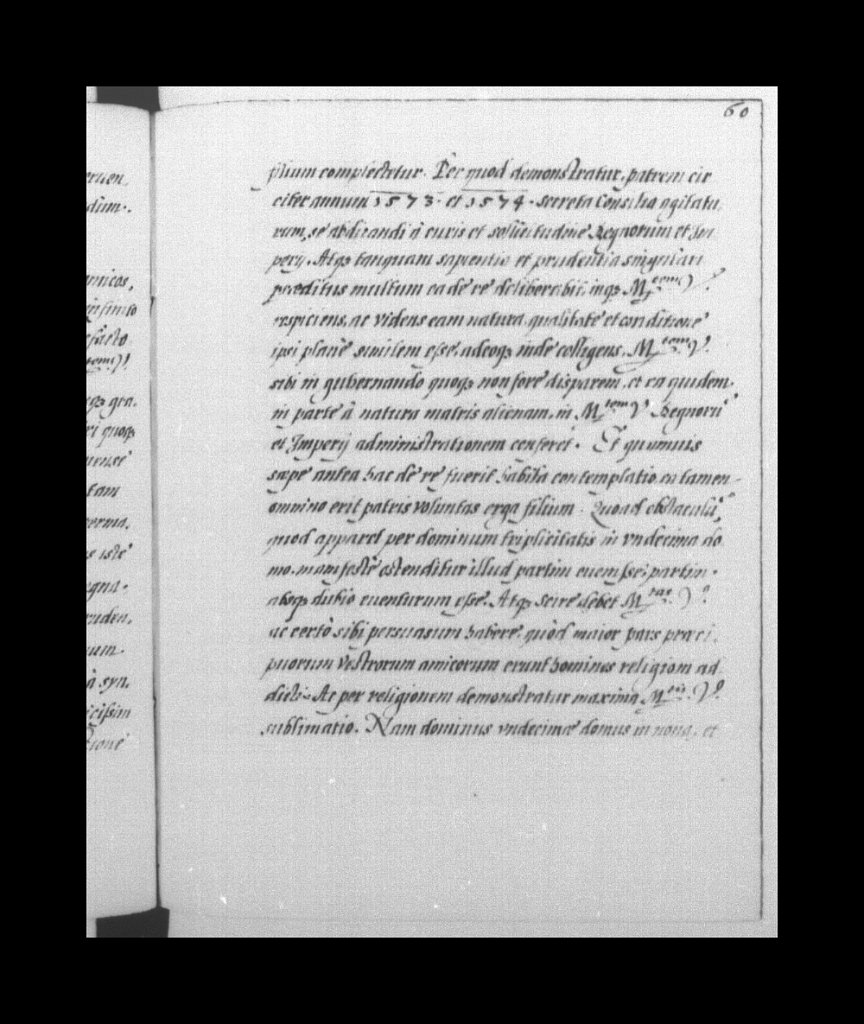 60
filium complectetur. Per quod demonstratur, patrem cir
citer annum 1573. et 1574. secreta Consilia agitatu,
rum, se abdicandi à curis et sollicitudine Regnorum et Im
perij. Atqꝫ tanquam sapientia et prudentia singulari
præditus multum ea dè re deliberabit, inqꝫ M.tem V.
respiciens, ac videns eam natura, qualitate et conditione
ipsi planè similem esse, adeoqꝫ inde colligens, M.tem V.
sibi in gubernando quoqꝫ non fore disparem, et ea quidem
in parte à natura matris alienam, in M.tem V. Regnorũ
et Imperij administrationem conferet. Et quamuis
sæpe antea hac dè re fuerit habita contemplatio, ea tamen
omnino erit patris voluntas erga filium. Quoad obstacula,
quod apparet per dominum triplicitatis in vndecima do
mo, manifestè ostenditur illud partim euenisse, partim
absqꝫ dubio euenturum esse. Atqꝫ scire debet M.tas V.
ac certò sibi persuasum habere, quòd maior pars præci,
puorum vestrorum amicorum erunt homines religioni ad
dicti. Ac per religionem demonstratur maxima M.tis V.
sublimatio. Nam dominus vndecimæ domus in nona, et
eruen,
dum.
amicos,
facto
tem V.
qꝫ gra.
ri quoqꝫ
tam
s iste
gna.
à syn,
icissim
tione